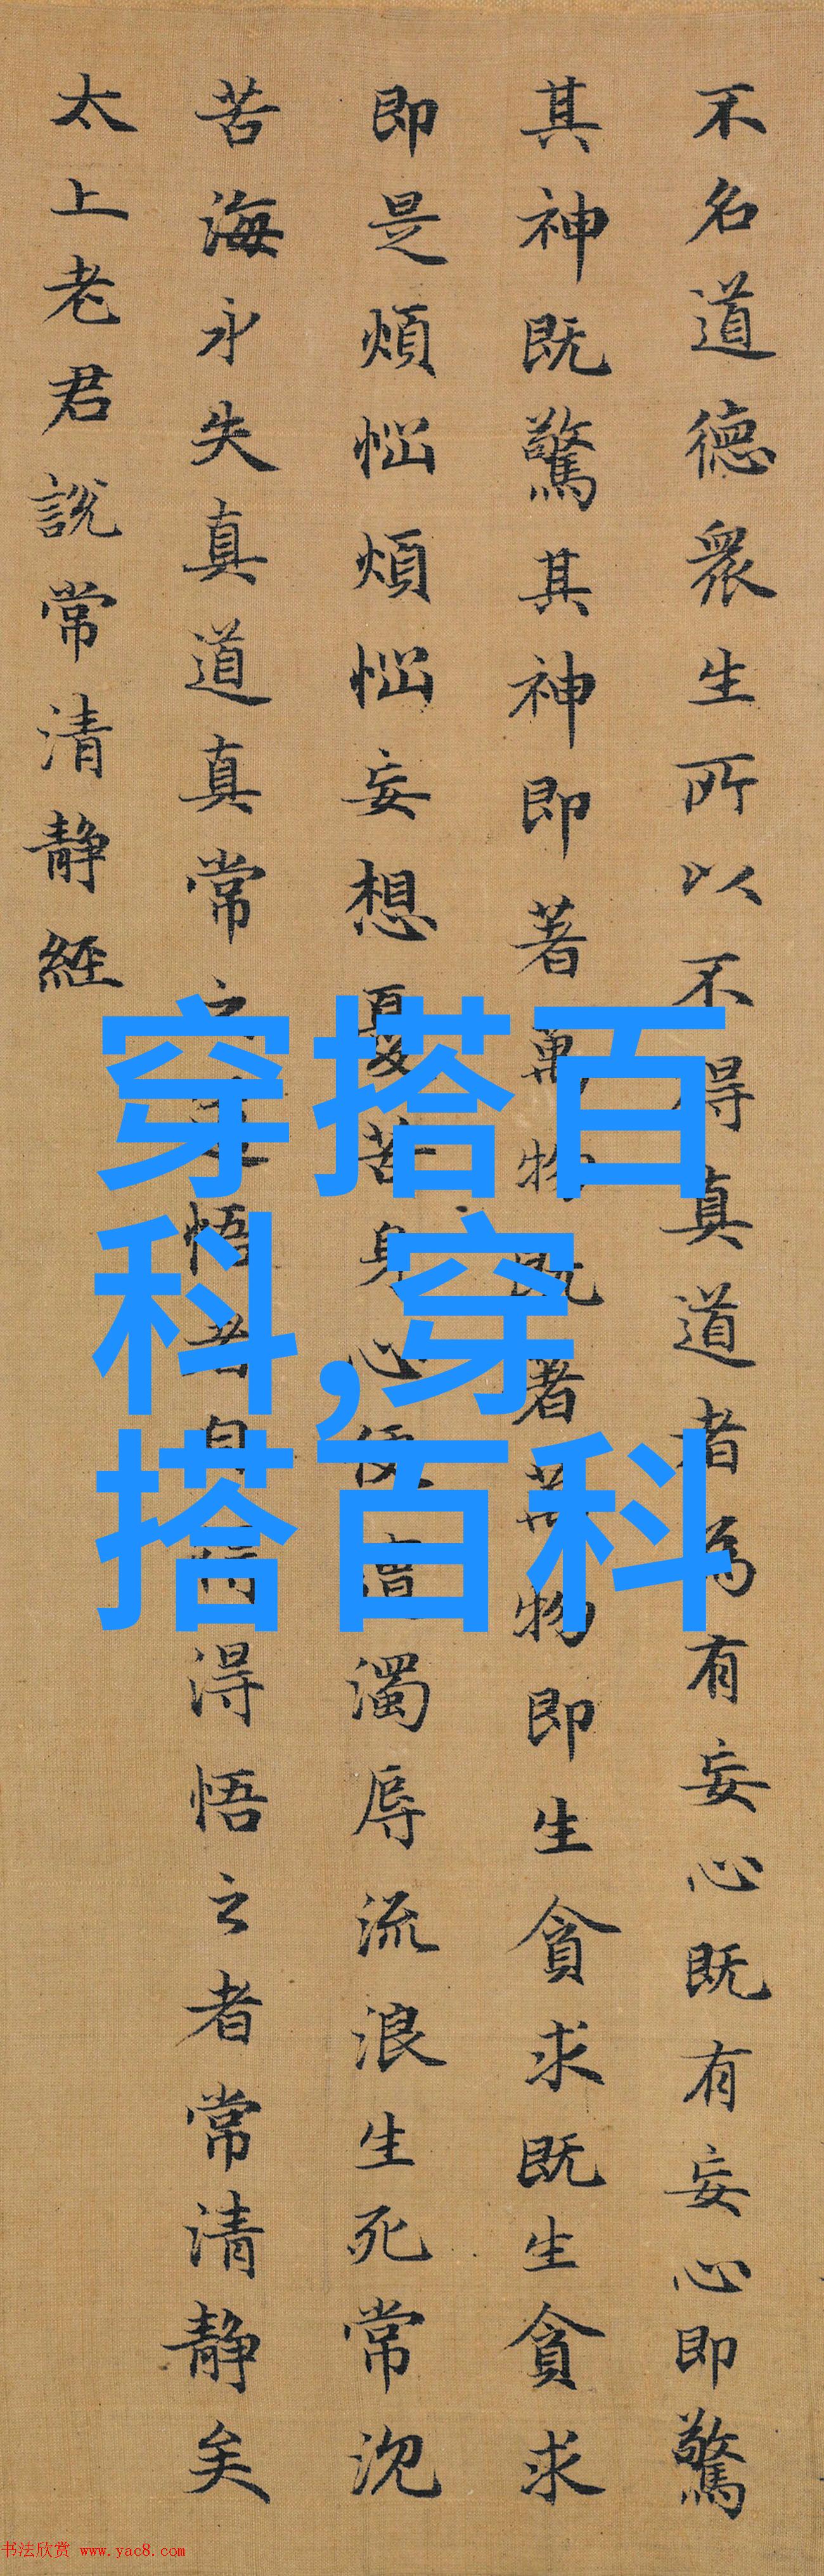 不名道德眾生所以不得真道者為有妄心既有妄心即驚
其神既驚其神即著萬物既著萬物即生貪求既生貪求
即是煩惱煩惱妄想憂苦身心便遭濁辱流浪生死常沉
苦海永失真道真常之道悟者自得得悟之者常清靜矣
太上老君說常清靜經
穿搭百
科,穿
搭百科
书法欣赏 www.yac8.com